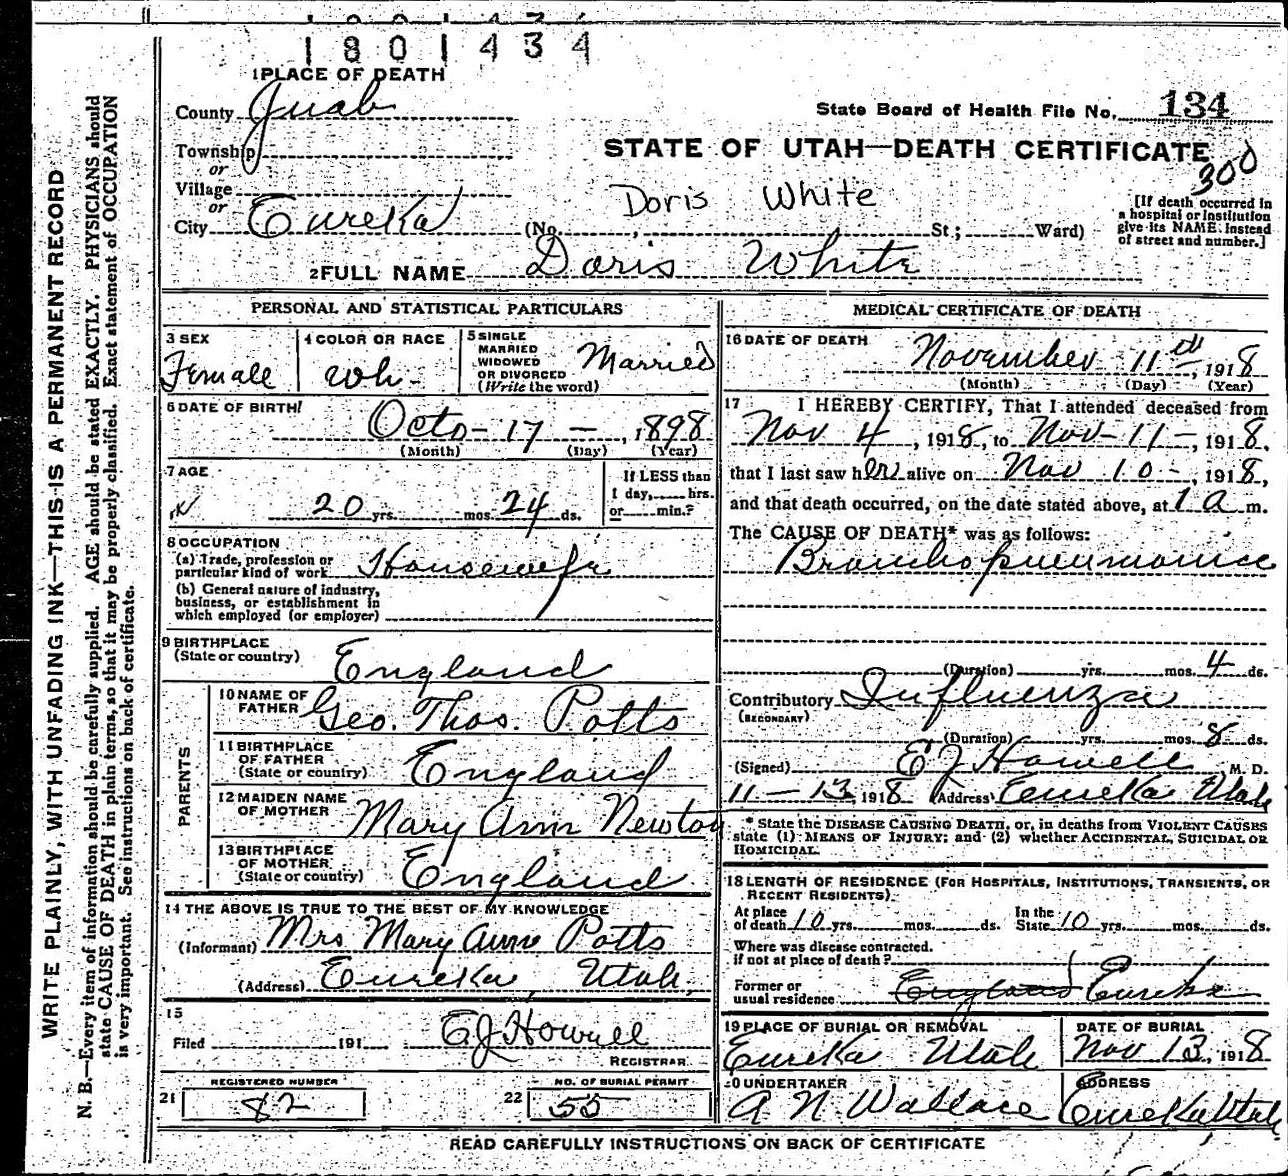 1801434
1 PLACE OF DEATH
County Juab
State Board of Health File No. 134
Township
or
STATE OF UTAH—DEATH CERTIFICATE
300
Village
or
Doris White
City Eureka (No. , St.; Ward)
[If death occurred in
a hospital or institution
give its NAME instead
of street and number.]
2 FULL NAME Doris White
PERSONAL AND STATISTICAL PARTICULARS
3 SEX
Female
4 COLOR OR RACE
Wh.
5 SINGLE
MARRIED
WIDOWED
OR DIVORCED
(Write the word)
Married
6 DATE OF BIRTH
Octo - 17 - , 1898
(Month) (Day) (Year)
7 AGE
20 yrs. mos. 24 ds.
If LESS than
1 day, hrs.
or min.?
8 OCCUPATION
(a) Trade, profession or
particular kind of work Housewife
(b) General nature of industry,
business, or establishment in
which employed (or employer)
9 BIRTHPLACE
(State or country) England
PARENTS
10 NAME OF
FATHER Geo. Thos. Potts
11 BIRTHPLACE
OF FATHER
(State or country) England
12 MAIDEN NAME
OF MOTHER Mary Ann Newton
13 BIRTHPLACE
OF MOTHER
(State or country) England
14 THE ABOVE IS TRUE TO THE BEST OF MY KNOWLEDGE
(Informant) Mrs Mary Ann Potts
(Address) Eureka, Utah,
15
Filed 191 E J Howell
REGISTRAR
REGISTERED NUMBER
21 82
NO. OF BURIAL PERMIT
22 55
MEDICAL CERTIFICATE OF DEATH
16 DATE OF DEATH
November 11th, 1918
(Month) (Day) (Year)
17 I HEREBY CERTIFY, That I attended deceased from
Nov 4, 1918, to Nov - 11 -, 1918,
that I last saw her alive on Nov 10 -, 1918,
and that death occurred, on the date stated above, at 1 a m.
The CAUSE OF DEATH* was as follows:
Broncho pneumonia
(Duration) yrs. mos. 4 ds.
Contributory Influenza
(SECONDARY)
(Duration) yrs. mos. 8 ds.
(Signed) E J Howell M. D.
11 - 13 1918 (Address) Eureka Utah
* State the DISEASE CAUSING DEATH, or, in deaths from VIOLENT CAUSES
state (1) MEANS OF INJURY; and (2) whether ACCIDENTAL, SUICIDAL OR
HOMICIDAL.
18 LENGTH OF RESIDENCE (FOR HOSPITALS, INSTITUTIONS, TRANSIENTS, OR
RECENT RESIDENTS).
At place
of death 10 yrs. mos. ds. In the
State 10 yrs. mos. ds.
Where was disease contracted.
if not at place of death?
Former or
usual residence England Eureka
19 PLACE OF BURIAL OR REMOVAL
Eureka Utah
DATE OF BURIAL
Nov 13, 1918
20 UNDERTAKER
A N Wallace
ADDRESS
Eureka Utah
READ CAREFULLY INSTRUCTIONS ON BACK OF CERTIFICATE
WRITE PLAINLY, WITH UNFADING INK—THIS IS A PERMANENT RECORD
N. B.—Every item of information should be carefully supplied. AGE should be stated EXACTLY. PHYSICIANS should
state CAUSE OF DEATH in plain terms, so that it may be properly classified. Exact statement of OCCUPATION
is very important. See instructions on back of certificate.